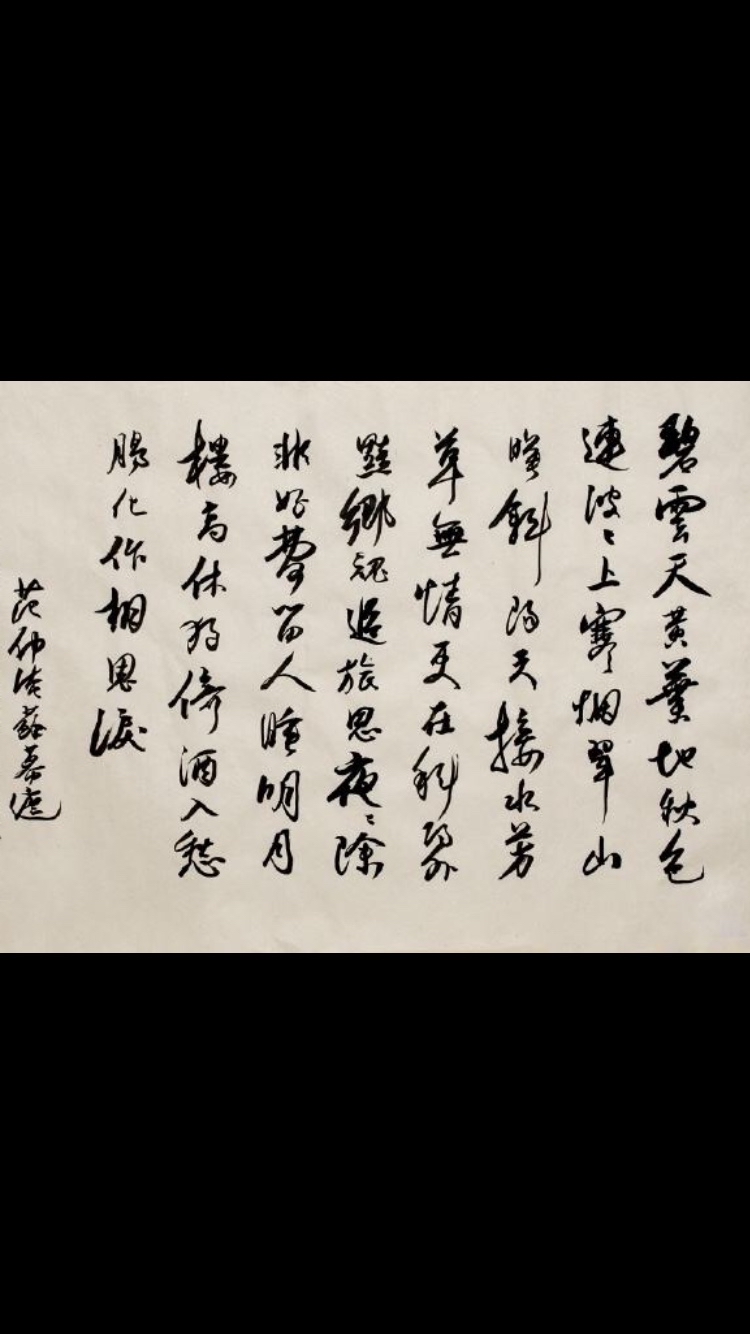 碧雲天黄葉地秋色
連波〻上寒烟翠山
暎斜陽天接水芳
草無情更在斜陽外
黯鄉魂追旅思夜〻除
非好夢留人睡明月
樓高休獨倚酒入愁
腸化作相思淚
范仲淹蘇幕遮